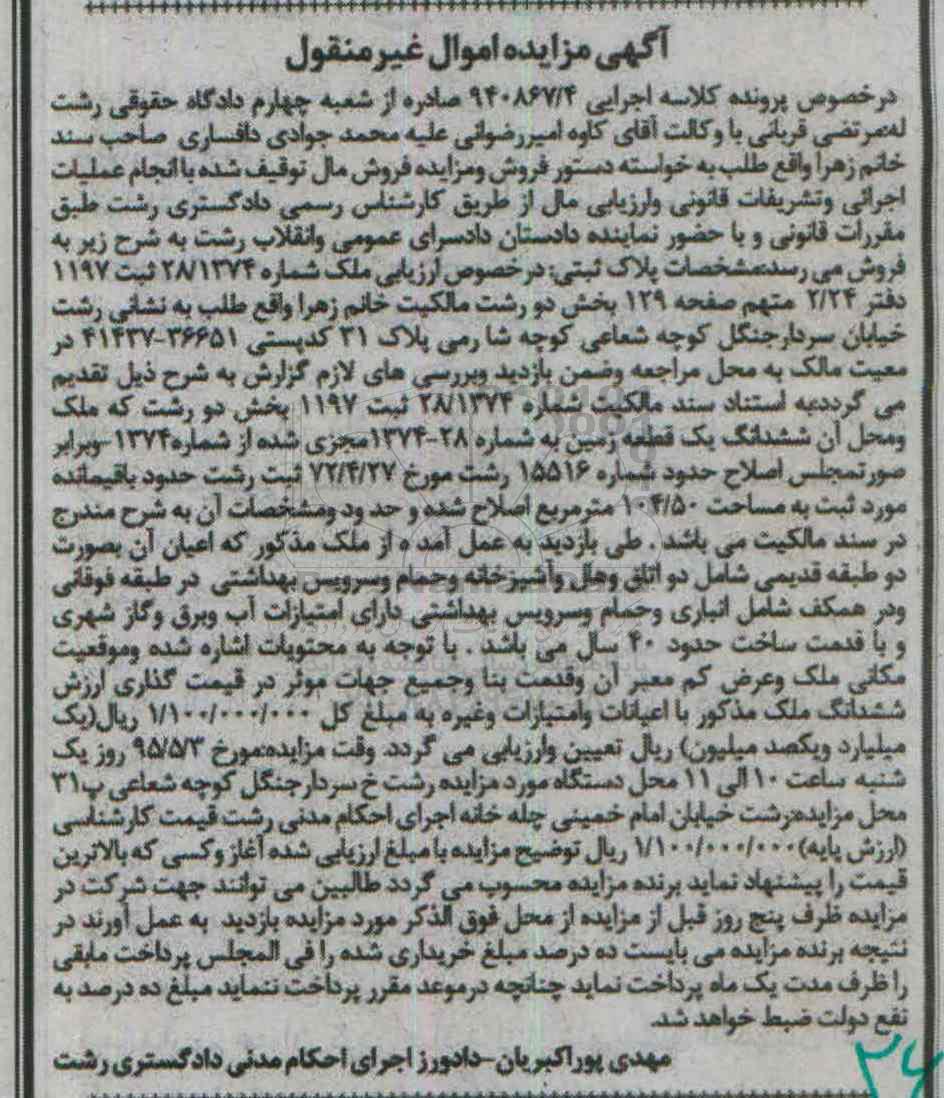 آگهی مزایده اموال غیر منقول
درخصوص پرونده کلاسه اجرایی ۹۴۰۸۶۷/۴ صادره از شعبه چهارم دادگاه حقوقی رشت
له:مرتضی قربانی با وکالت آقای کاوه امیررضوانی علیه محمد جوادی دافساری صاحب سند
خانم زهرا واقع طلب به خواسته دستور فروش ومزایده فروش مال توقیف شده باانجام عملیات
اجرائی وتشریفات قانونی وارزیابی مال از طریق کارشناس رسمی دادگستری رشت طبق
مقررات قانونی و با حضور نماینده دادستان دادسرای عمومی وانقلاب رشت به شرح زیر به
فروش می رسد:مشخصات پلاک ثبتی: درخصوص ارزیابی ملک شماره ۲۸/۱۳۷۴ ثبت ۱۱۹۷
دفتر ۲/۲۴ متهم صفحه ۱۲۹ بخش دو رشت مالکیت خانم زهرا واقع طلب به نشانی رشت
خیابان سردارجنگل کوچه شعاعی کوچه شا رمی پلاک ۳۱ کدپستی ۳۶۶۵۱-۴۱۴۳۷ در
معیت مالک به محل مراجعه وضمن بازدید وبررسی های لازم گزارش به شرح ذیل تقدیم
می گردد:به استناد سند مالکیت شماره ۲۸/۱۳۷۴ ثبت ۱۱۹۷ بخش دو رشت که ملک
ومحل آن ششدانگ یک قطعه زمین به شماره ۲۸-۱۳۷۴مجزی شده از شماره۱۳۷۴-وبرابر
صورتمجلس اصلاح حدود شماره ۱۵۵۱۶ رشت مورخ ۷۲/۴/۲۷ ثبت رشت حدود باقیمانده
مورد ثبت به مساحت ۱۰۴/۵۰ مترمربع اصلاح شده و حد ود ومشخصات آن به شرح مندرج
در سند مالکیت می باشد . طی بازدید به عمل آمد ه از ملک مذکور که اعیان آن بصورت
دو طبقه قدیمی شامل دو اتاق وهال وآشپزخانه وحمام وسرویس بهداشتی در طبقه فوقانی
ودر همکف شامل انباری وحمام وسرویس بهداشتی دارای امتیازات آب وبرق وگاز شهری
و با قدمت ساخت حدود ۴۰ سال می باشد . با توجه به محتویات اشاره شده وموقعیت
مکانی ملک وعرض کم معبر آن وقدمت بنا وجمیع جهات موثر در قیمت گذاری ارزش
ششدانگ ملک مذکور با اعیانات وامتیازات وغیره به مبلغ کل ۱/۱۰۰/۰۰۰/۰۰۰ ریال(یک
میلیارد ویکصد میلیون) ریال تعیین وارزیابی می گردد. وقت مزایده:مورخ ۹۵/۵/۳ روز یک
شنبه ساعت ۱۰ الی ۱۱ محل دستگاه مورد مزایده رشت خ سردارجنگل کوچه شعاعی پ۳۱
محل مزایده:رشت خیابان امام خمینی چله خانه اجرای احکام مدنی رشت قیمت کارشناسی
(ارزش پایه)۱/۱۰۰/۰۰۰/۰۰۰ ریال توضیح مزایده با مبلغ ارزیابی شده آغاز وکسی که بالاترین
قیمت را پیشنهاد نماید برنده مزایده محسوب می گردد طالبین می توانند جهت شرکت در
مزایده ظرف پنج روز قبل از مزایده از محل فوق الذکر مورد مزایده بازدید به عمل آورند در
نتیجه برنده مزایده می بایست ده درصد مبلغ خریداری شده را فی المجلس پرداخت مابقی
را ظرف مدت یک ماه پرداخت نماید چنانچه درموعد مقرر پرداخت ننماید مبلغ ده درصد به
نفع دولت ضبط خواهد شد.
مهدی پوراکبریان-دادورز اجرای احکام مدنی دادگستری رشت
۳۶